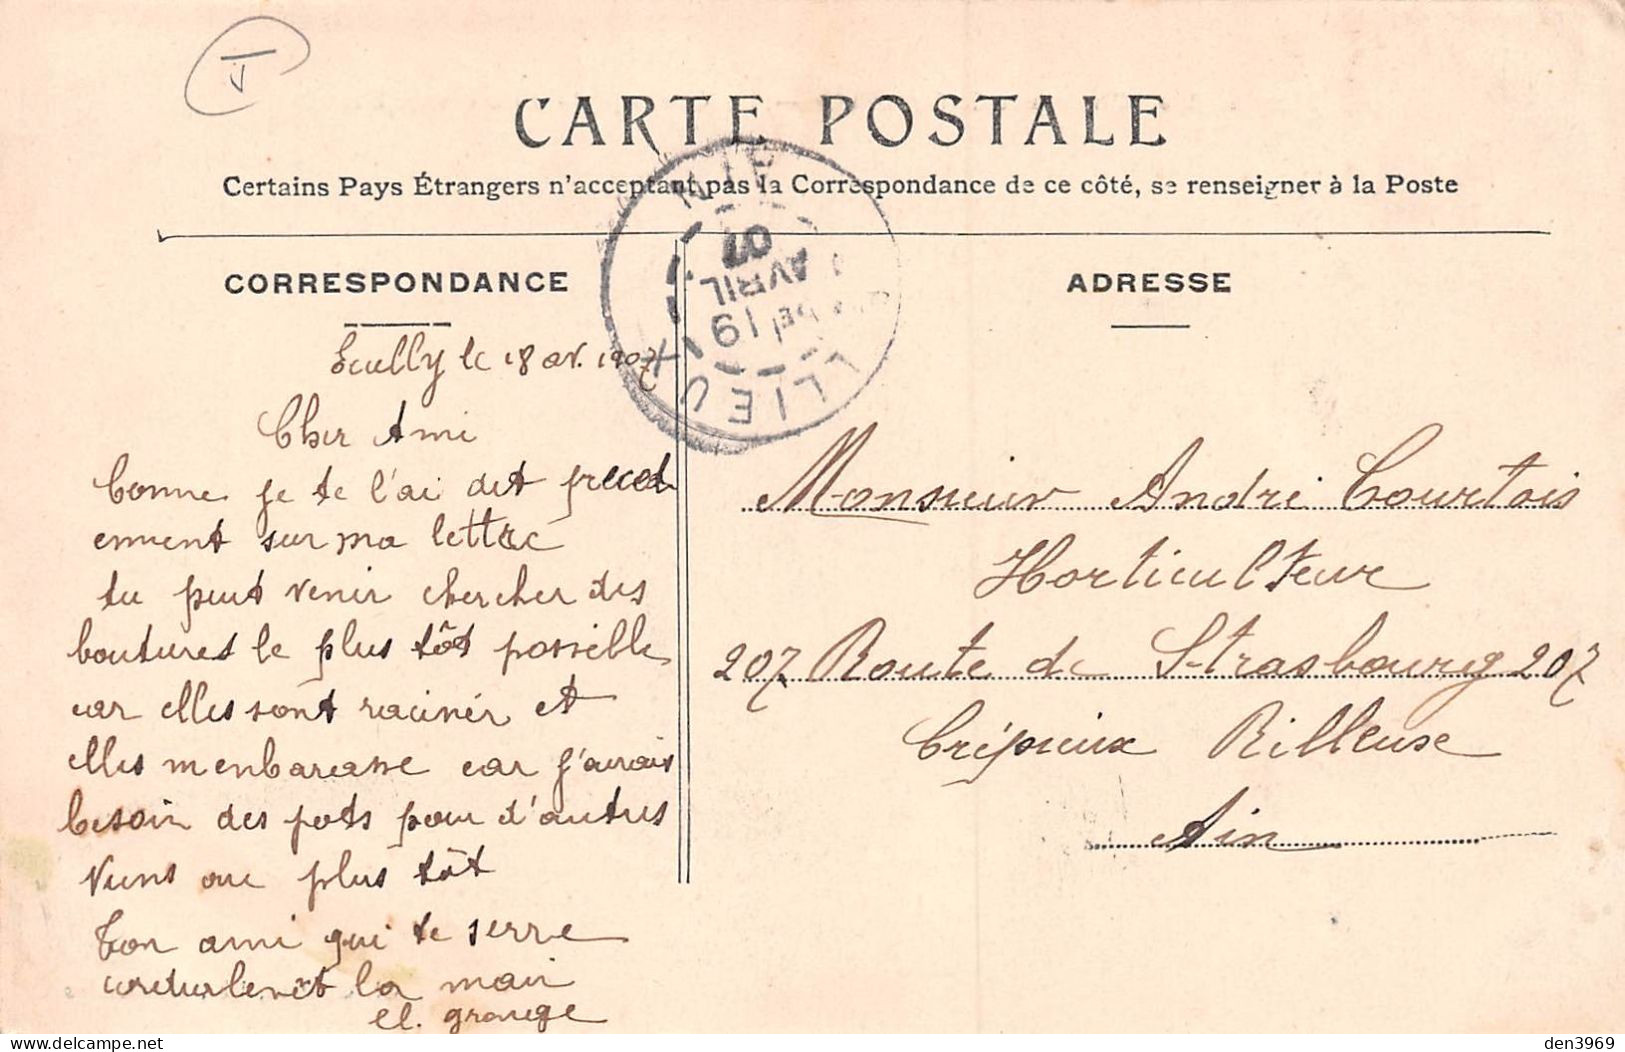 CARTE POSTALE
Certains Pays Étrangers n'acceptant pas la Correspondance de ce côté, se renseigner à la Poste
CORRESPONDANCE
Ecully le 18 av. 1907
Cher Ami
Comme je te l'ai dit preced
emment sur ma lettre
tu peut venir chercher des
boutures le plus tôt possible
car elles sont raciner et
elles m'enbarasse car j'aurais
besoin des pots pour d'autres
Viens au plus tôt
Ton ami qui te serre
la main
cl. grange
ADRESSE
Monsieur André Courtois
Horticulteur
207. Route de Strasbourg 207
Crépieux Rilleuse
Ain
19
AVRIL
07
LLIEUX
den3969